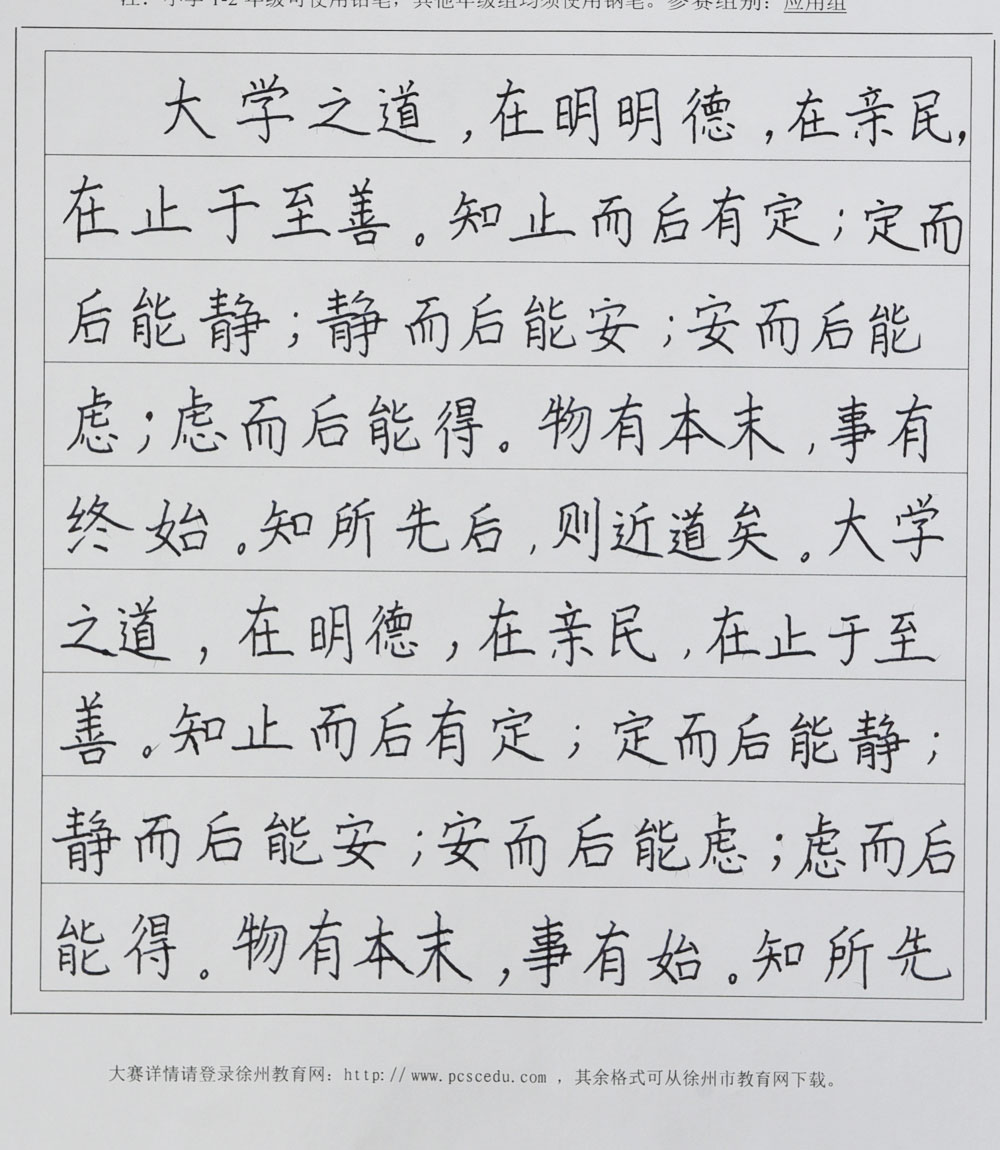 注：小学 1-2 年级可使用铅笔，其他年级组均须使用钢笔。参赛组别：应用组
大学之道，在明明德，在亲民，
在止于至善。知止而后有定；定而
后能静；静而后能安；安而后能
虑；虑而后能得。物有本末，事有
终始。知所先后，则近道矣。大学
之道，在明德，在亲民，在止于至
善。知止而后有定；定而后能静；
静而后能安；安而后能虑；虑而后
能得。物有本末，事有始。知所先
大赛详情请登录徐州教育网：http://www.pcscedu.com ，其余格式可从徐州市教育网下载。